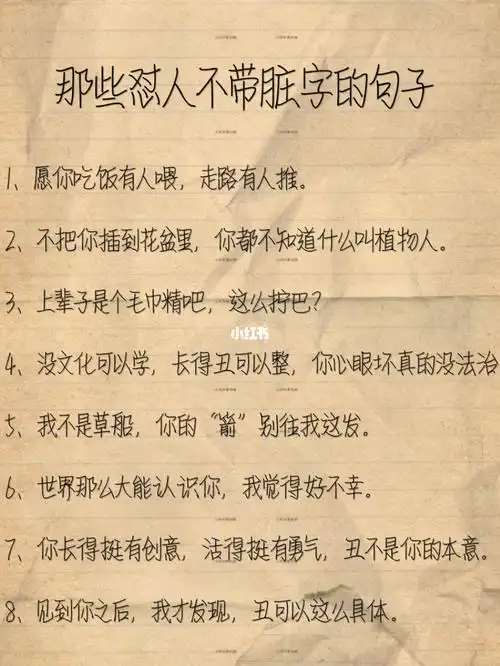 那些怼人不带脏字的句子
1、愿你吃饭有人喂，走路有人推。
2、不把你插到花盆里，你都不知道什么叫植物人。
3、上辈子是个毛巾精吧，这么拧巴？
小红书
4、没文化可以学，长得丑可以整，你心眼坏真的没法治
5、我不是草船，你的“箭”别往我这发。
6、世界那么大能认识你，我觉得好不幸。
7、你长得挺有创意，活得挺有勇气，丑不是你的本意。
8、见到你之后，我才发现，丑可以这么具体。